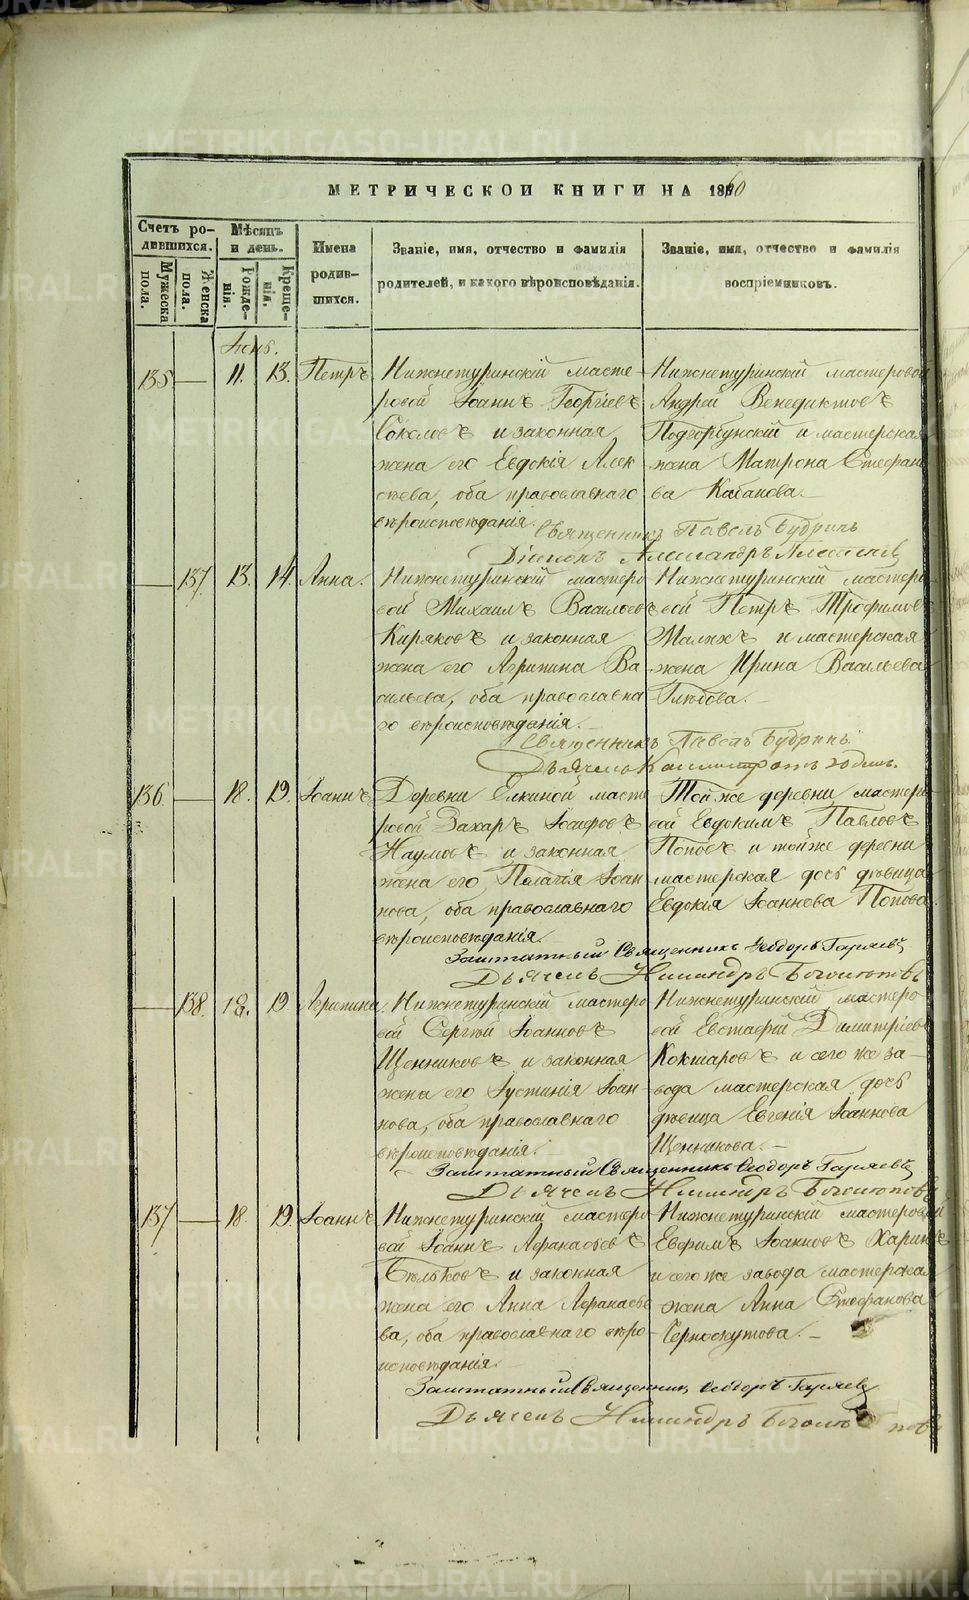 МЕТРИЧЕСКОЙ КНИГИ НА 1860
Счетъ ро-
дившихся.
Мужеска
пола.
Женска
пола.
Мѣсяцъ
и день.
Рожде-
нія.
Креще-
нія.
Имена
родив-
шихся.
Званіе, имя, отчество и фамилія
родителей, и какого вѣроисповѣданія.
Званіе, имя, отчество и фамилія
воспріемниковъ.
Іюнь.
135 — 11. 13. Петръ
Нижнетуринскій масте-
ровой Іоаннъ Георгіевъ
Соколовъ и законная
жена его Евдокія Алек
сѣева, оба православнаго
вѣроисповѣданія.
Нижнетуринскій мастеровой
Андрей Венедиктовъ
Подгорбунскій и мастерская
жена Матрона Стефано
ва Кабакова.—
Священникъ Павелъ Будринъ
Діаконъ Александръ
— 137. 13. 14. Анна.
Нижнетуринскій мастеро
вой Михаилъ Васильевъ
Киряковъ и законная
жена его Агрипина Ва
сильева, оба православна
го вѣроисповѣданія.—
Нижнетуринскій мастеро
вой Петръ Трофимовъ
Малыхъ и мастерская
жена Ирина Васильева
Глѣбова.—
Священникъ Павелъ Будринъ
136 — 18. 19. Іоаннъ
Деревни Елкиной масте
ровой Захаръ Іосифовъ
Наумовъ и законная
жена его, Пелагія Іоан
нова, оба православнаго
вѣроисповѣданія.
Той же деревни мастеро
вой Евдокимъ Павловъ
Поповъ и той же деревни
мастерская дочь дѣвица
Евдокія Іоаннова Попова.
Заштатный Священникъ Ѳеодоръ Гаряевъ
— 138. 18. 19 Агрипина
Нижнетуринскій мастеро
вой Сергѣй Іоанновъ
Щенниковъ и законная
жена его Іустинія Іоан
нова, оба православнаго
вѣроисповѣданія.
Нижнетуринскій мастеро
вой Евстафій Димитріевъ
Кокшаровъ и сего же за-
вода мастерская дочь
дѣвица Евгенія Іоаннова
Щенникова.—
Заштатный Священникъ Ѳеодоръ Гаряевъ
137 — 18. 19. Іоаннъ
Нижнетуринскій мастеро
вой Іоаннъ Афанасьевъ
Бѣльковъ и законная
жена его Анна Афанасье
ва, оба православнаго вѣро
исповѣданія.
Нижнетуринскій мастеровой
Евфимъ Іоанновъ Харинъ
и сего же завода мастерская
жена Анна Стефанова
Черноскутова.—
Заштатный Священникъ Ѳеодоръ Гаряевъ
METRIKI.GASO-URAL.RU